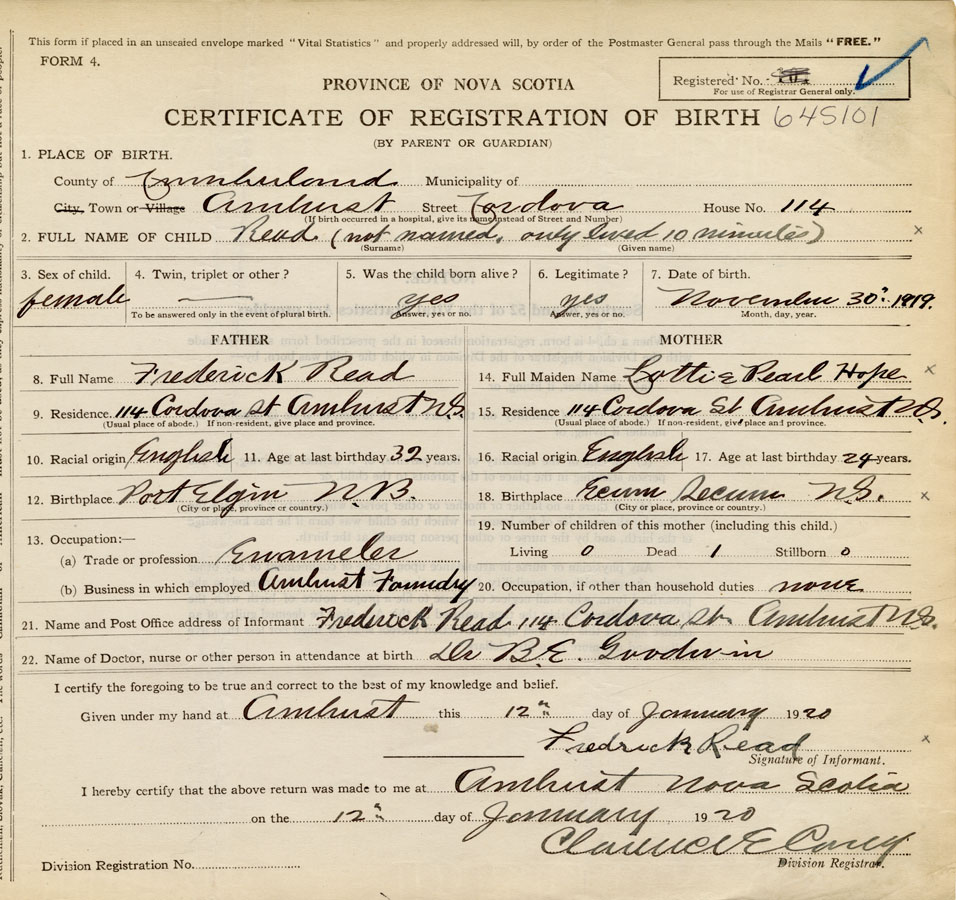 This form if placed in an unsealed envelope marked "Vital Statistics" and properly addressed will, by order of the Postmaster General pass through the Mails "FREE."
FORM 4.
Registered No.
For use of Registrar General only.
PROVINCE OF NOVA SCOTIA
CERTIFICATE OF REGISTRATION OF BIRTH 64S101
(BY PARENT OR GUARDIAN)
1. PLACE OF BIRTH.
County of Cumberland Municipality of
City, Town or Village Amherst Street Cordova House No. 114
(If birth occurred in a hospital, give its name instead of Street and Number)
2. FULL NAME OF CHILD Read (not named, only lived 10 minutes)
(Surname) (Given name)
3. Sex of child. 4. Twin, triplet or other? 5. Was the child born alive? 6. Legitimate? 7. Date of birth.
female — yes yes November 30th 1919.
To be answered only in the event of plural birth. Answer, yes or no. Answer, yes or no. Month, day, year.
FATHER MOTHER
8. Full Name Frederick Read 14. Full Maiden Name Lottie Pearl Hope
9. Residence. 114 Cordova St Amhurst N.S. 15. Residence 114 Cordova St Amhurst N.S.
(Usual place of abode.) If non-resident, give place and province. (Usual place of abode.) If non-resident, give place and province.
10. Racial origin English 11. Age at last birthday 32 years. 16. Racial origin English 17. Age at last birthday 24 years.
12. Birthplace Port Elgin N.B. 18. Birthplace Ecum Secum N.S.
(City or place, province or country.) (City or place, province or country.)
13. Occupation:— 19. Number of children of this mother (including this child.)
(a) Trade or profession Enameler Living 0 Dead 1 Stillborn 0
(b) Business in which employed Amhurst Foundry 20. Occupation, if other than household duties none
21. Name and Post Office address of Informant Frederick Read 114 Cordova St. Amhurst N.S.
22. Name of Doctor, nurse or other person in attendance at birth Dr B.E. Goodwin
I certify the foregoing to be true and correct to the best of my knowledge and belief.
Given under my hand at Amhurst this 12th day of January 1920
Fredrick Read
Signature of Informant.
I hereby certify that the above return was made to me at Amhurst Nova Scotia
on the 12th day of January 1920
Clarence E
Division Registration No. Division Registrar.